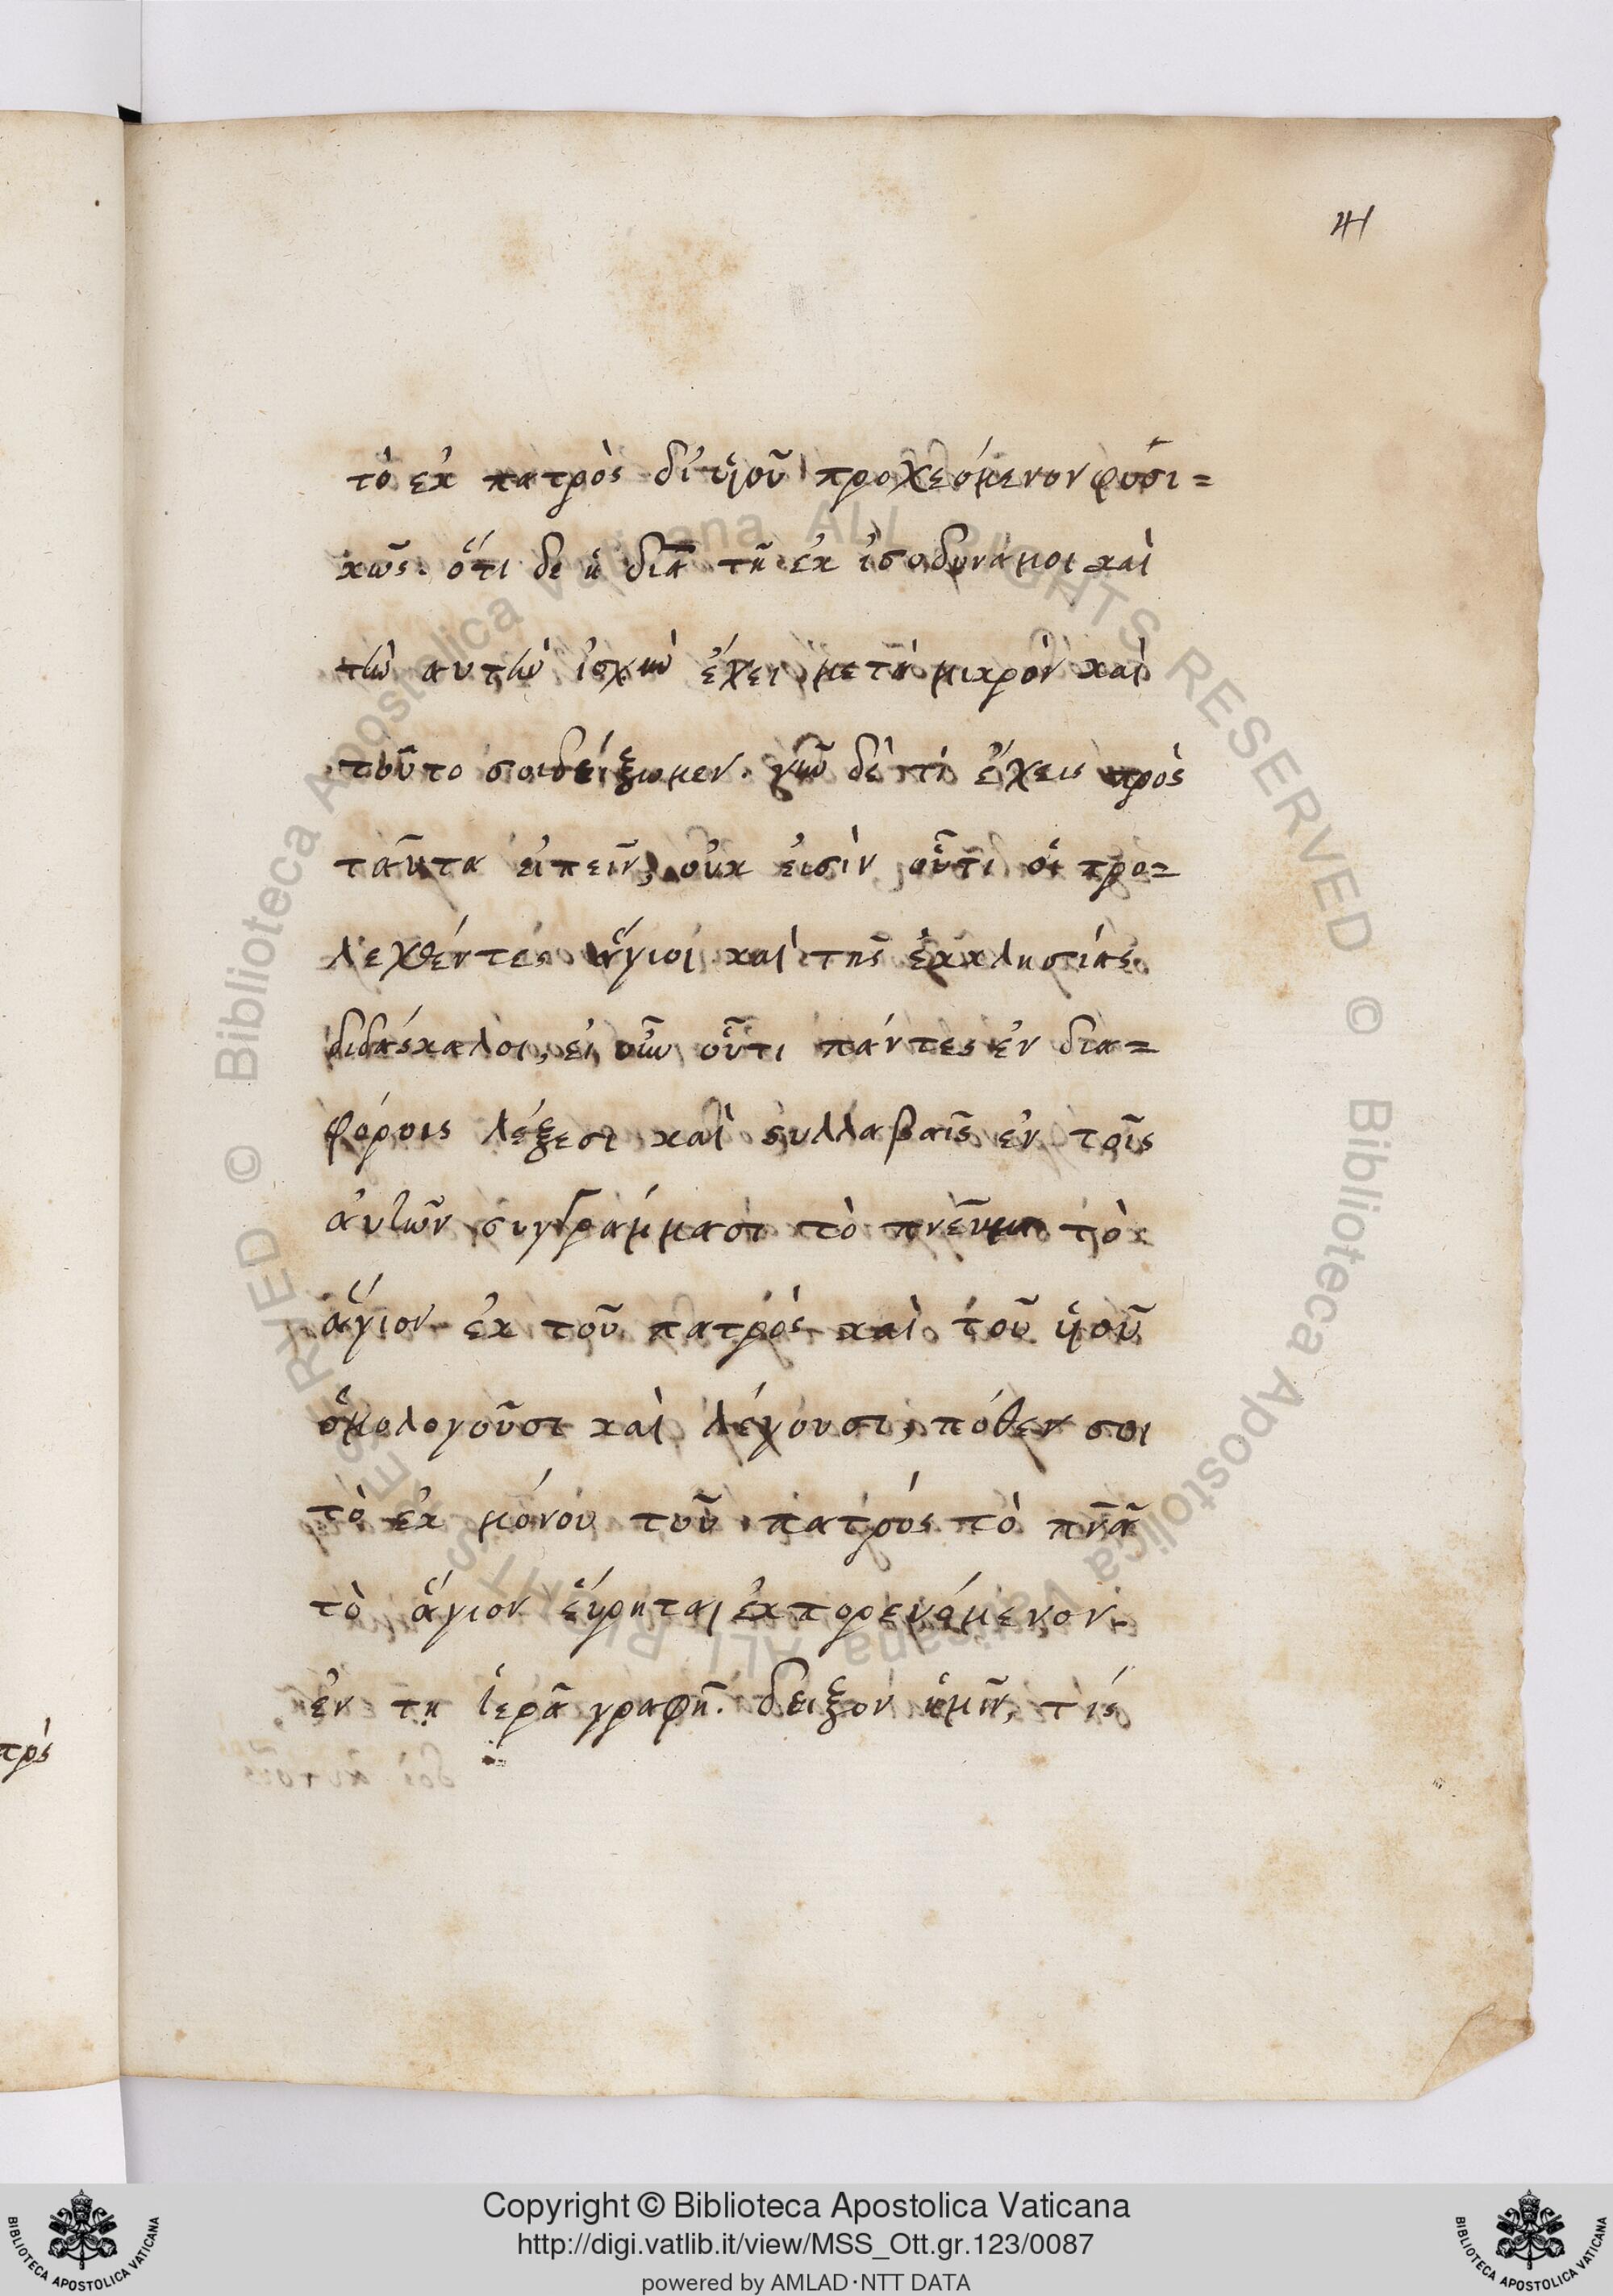 41
τὸ ἐκ πατρὸς δι' ὑιοῦ προχεόμενον φύσι=
κῶς. ὅτι δε ἡ διὰ τῆ ἐκ ἰσοδυναμοι καὶ
τὴν αυτὴν ἰσχὺν ἔχει, μετὰ μικρὸν καὶ
τοῦτο σοι δείξωμεν. νῦν δὲ τί ἔχεις πρὸς
ταῦτα εἰπεῖν, οὐκ εἰσὶν οὗτι οἱ προ=
λεχθέντες ἅγιοι καὶ τῆς ἐκκλησίας
διδάσκαλοι, εἰ οὖν οὗτι πάντες ἐν δια=
φόροις λέξεσι καὶ συλλαβαῖς ἐν τοῖς
ἀυτῶν συγγράμμασι τὸ πνεῦμα τὸ
ἅγιον ἐκ τοῦ πατρὸς καὶ τοῦ ὑιοῦ
ὁμολογοῦσι καὶ λέγουσι, πόθεν σοι
τὸ ἐκ μόνου τοῦ πατρός τὸ πν̅α
τὸ ἅγιον εὕρηται ἐκπορευόμενον.
ἐν τῃ ἱερᾶ γραφῆ. δειξον ἡμῖν, τίς
πρὸς
Copyright © Biblioteca Apostolica Vaticana
http://digi.vatlib.it/view/MSS_Ott.gr.123/0087
powered by AMLAD·NTT DATA
BIBLIOTECA APOSTOLICA VATICANA
BIBLIOTECA APOSTOLICA VATICANA
© Biblioteca Apostolica Vaticana ALL RIGHTS RESERVED © Biblioteca Apostolica Vaticana ALL RIGHTS RESERVED